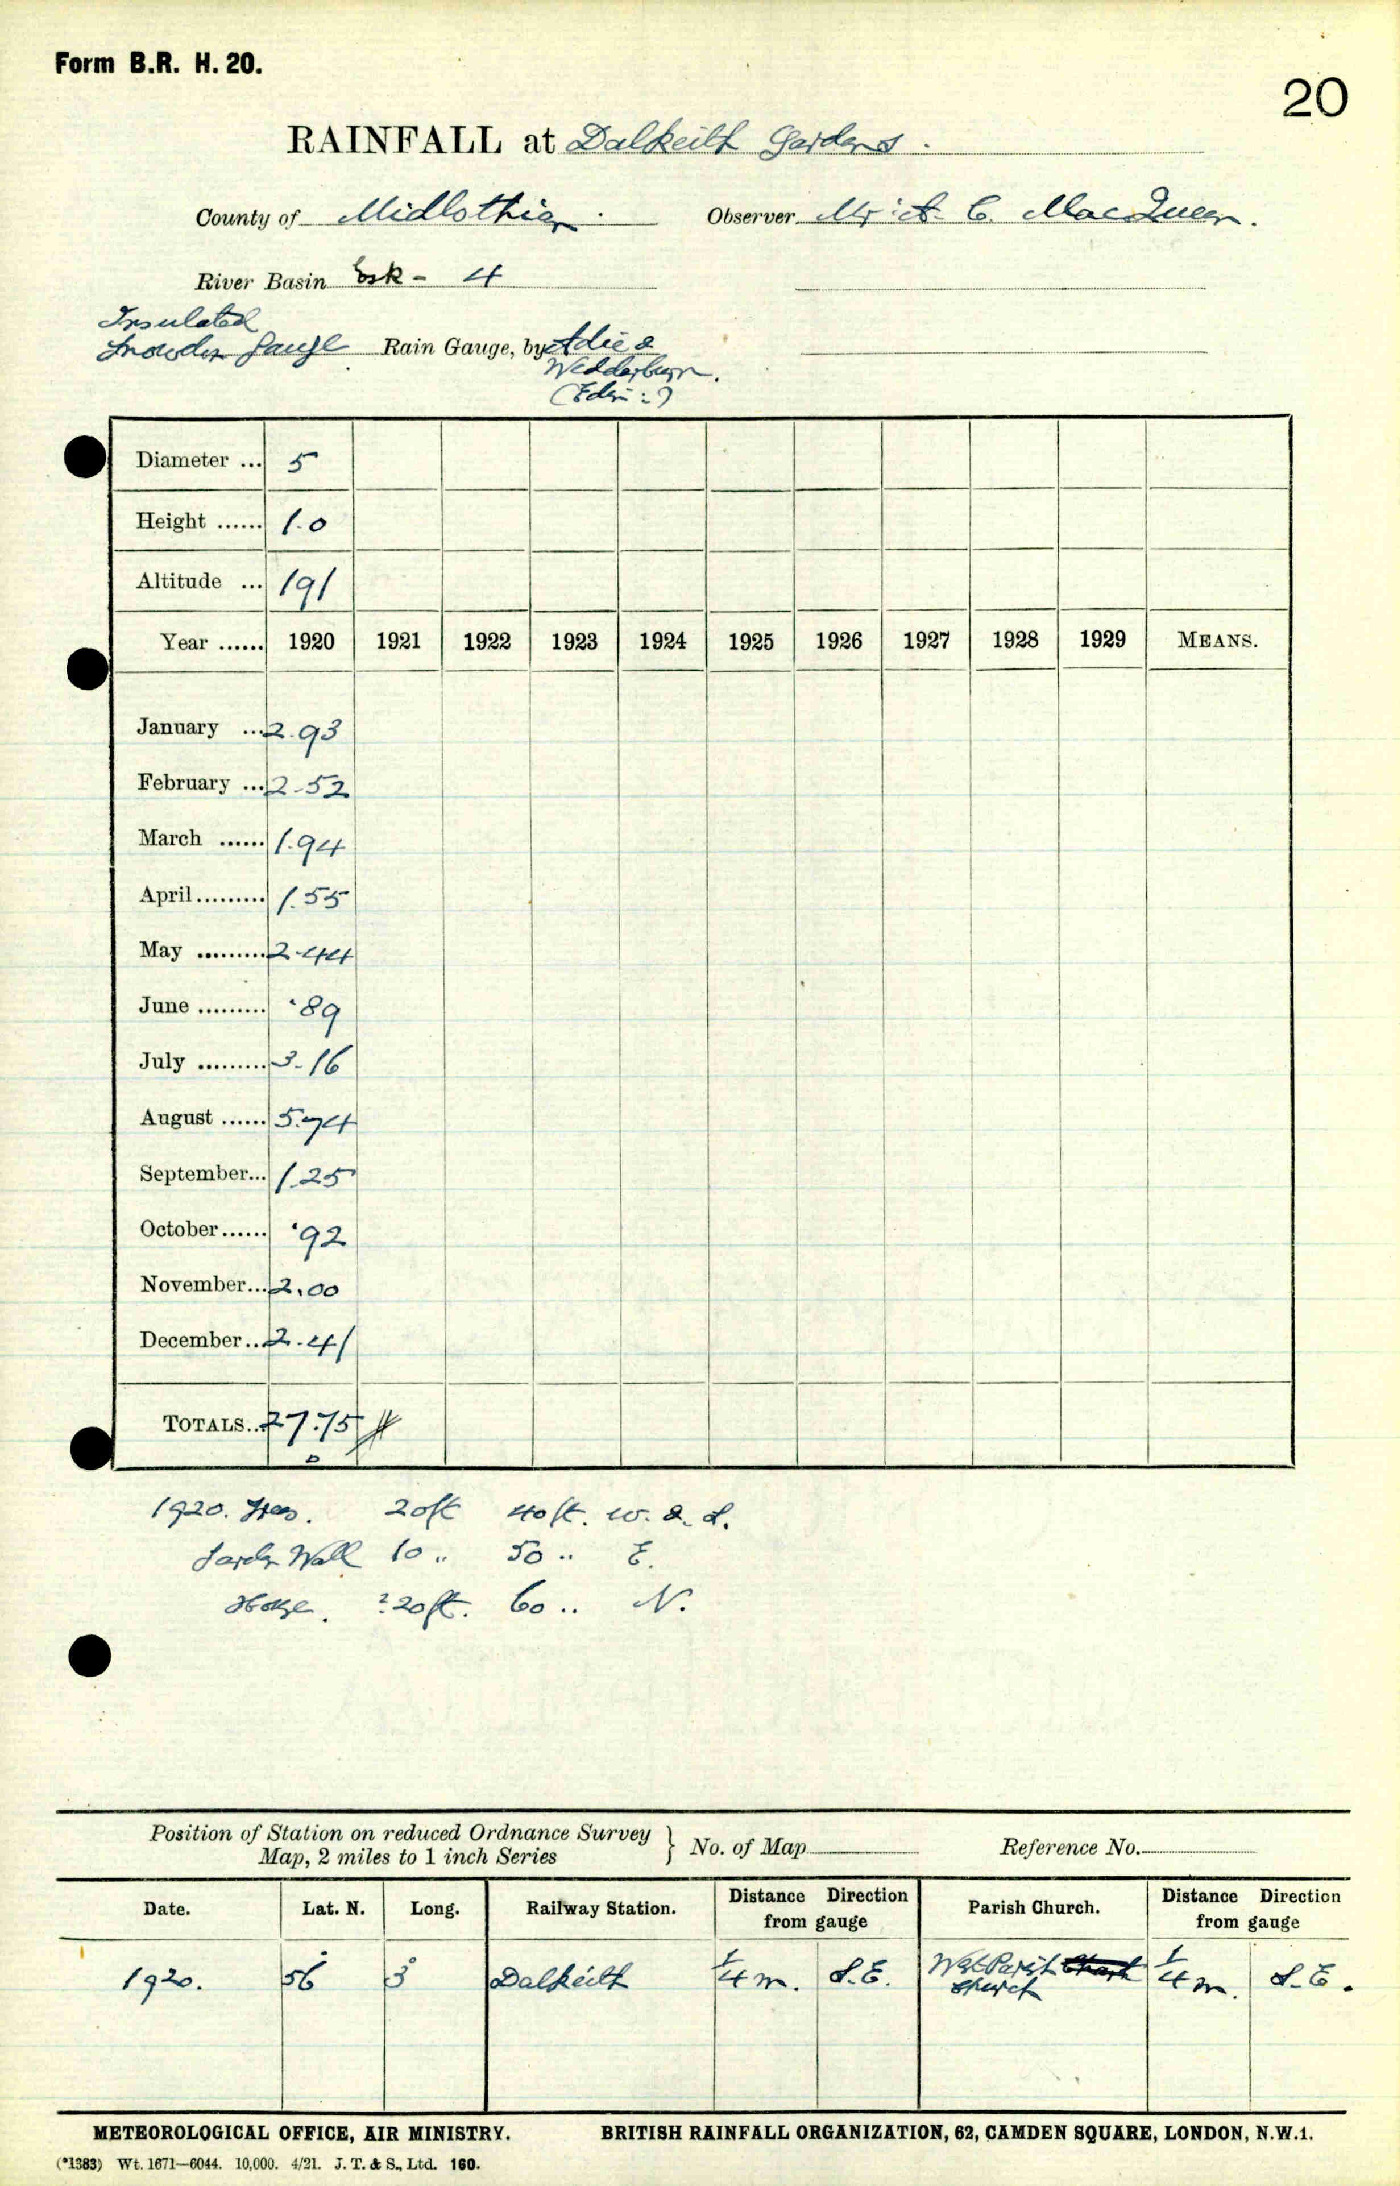 Form B.R. H. 20.
20
RAINFALL at Dalkeith Gardens.
County of Midlothian. Observer Mr. A. C. MacQueen.
River Basin Esk - 4
Insulated
Snowdon Gauge Rain Gauge, by Adie &
Wedderburn.
(Edin:)
Diameter ... 5
Height ...... 1.0
Altitude ... 191
Year ...... 1920 1921 1922 1923 1924 1925 1926 1927 1928 1929 MEANS.
January ... 2.93
February ... 2.52
March ...... 1.94
April......... 1.55
May ......... 2.44
June ......... .89
July ......... 3.16
August ...... 5.74
September... 1.25
October...... .92
November... 2.00
December... 2.41
TOTALS... 27.75
D
1920. Trees. 20ft 40ft. W. & S.
Garden Wall 10 " 50 " E.
House. ?20ft. 60 " N.
Position of Station on reduced Ordnance Survey
Map, 2 miles to 1 inch Series } No. of Map Reference No.
Date. Lat. N. Long. Railway Station. Distance Direction from gauge Parish Church. Distance Direction from gauge
1920. 56° 3° Dalkeith 1/4 m. S.E. West Parish Church 1/4 m. S.E.
METEOROLOGICAL OFFICE, AIR MINISTRY. BRITISH RAINFALL ORGANIZATION, 62, CAMDEN SQUARE, LONDON, N.W.1.
(*1383) Wt. 1671—6044. 10,000. 4/21. J. T. & S., Ltd. 160.